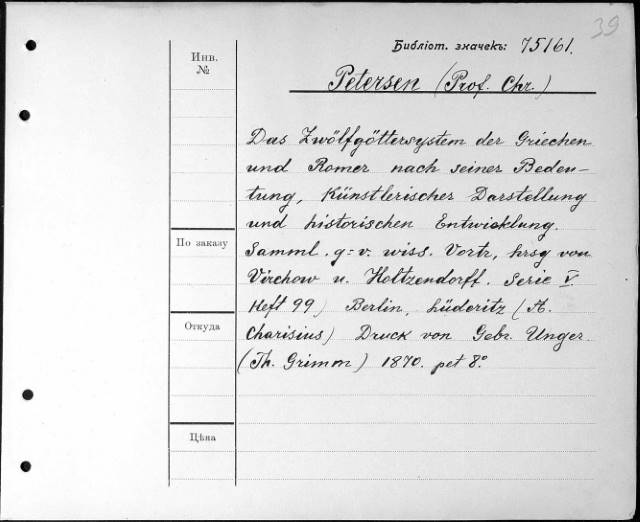 39
Библіот. значекъ: 75161.
Инв. №
Petersen (Prof. Chr.)
Das Zwölfgöttersystem der Griechen
und Romer nach seiner Bedeu-
tung, Künstlerischer Darstellung
und historischen Entwicklung.
Samml. g-v. wiss. Vortr, hrsg von
По заказу
Virchow u. Holtzendorff. Serie V.
Heft 99) Berlin, Lüderitz (A.
Откуда
Charisius) Druck von Gebr. Unger.
(Th. Grimm) 1870. pet 8°.
Цѣна